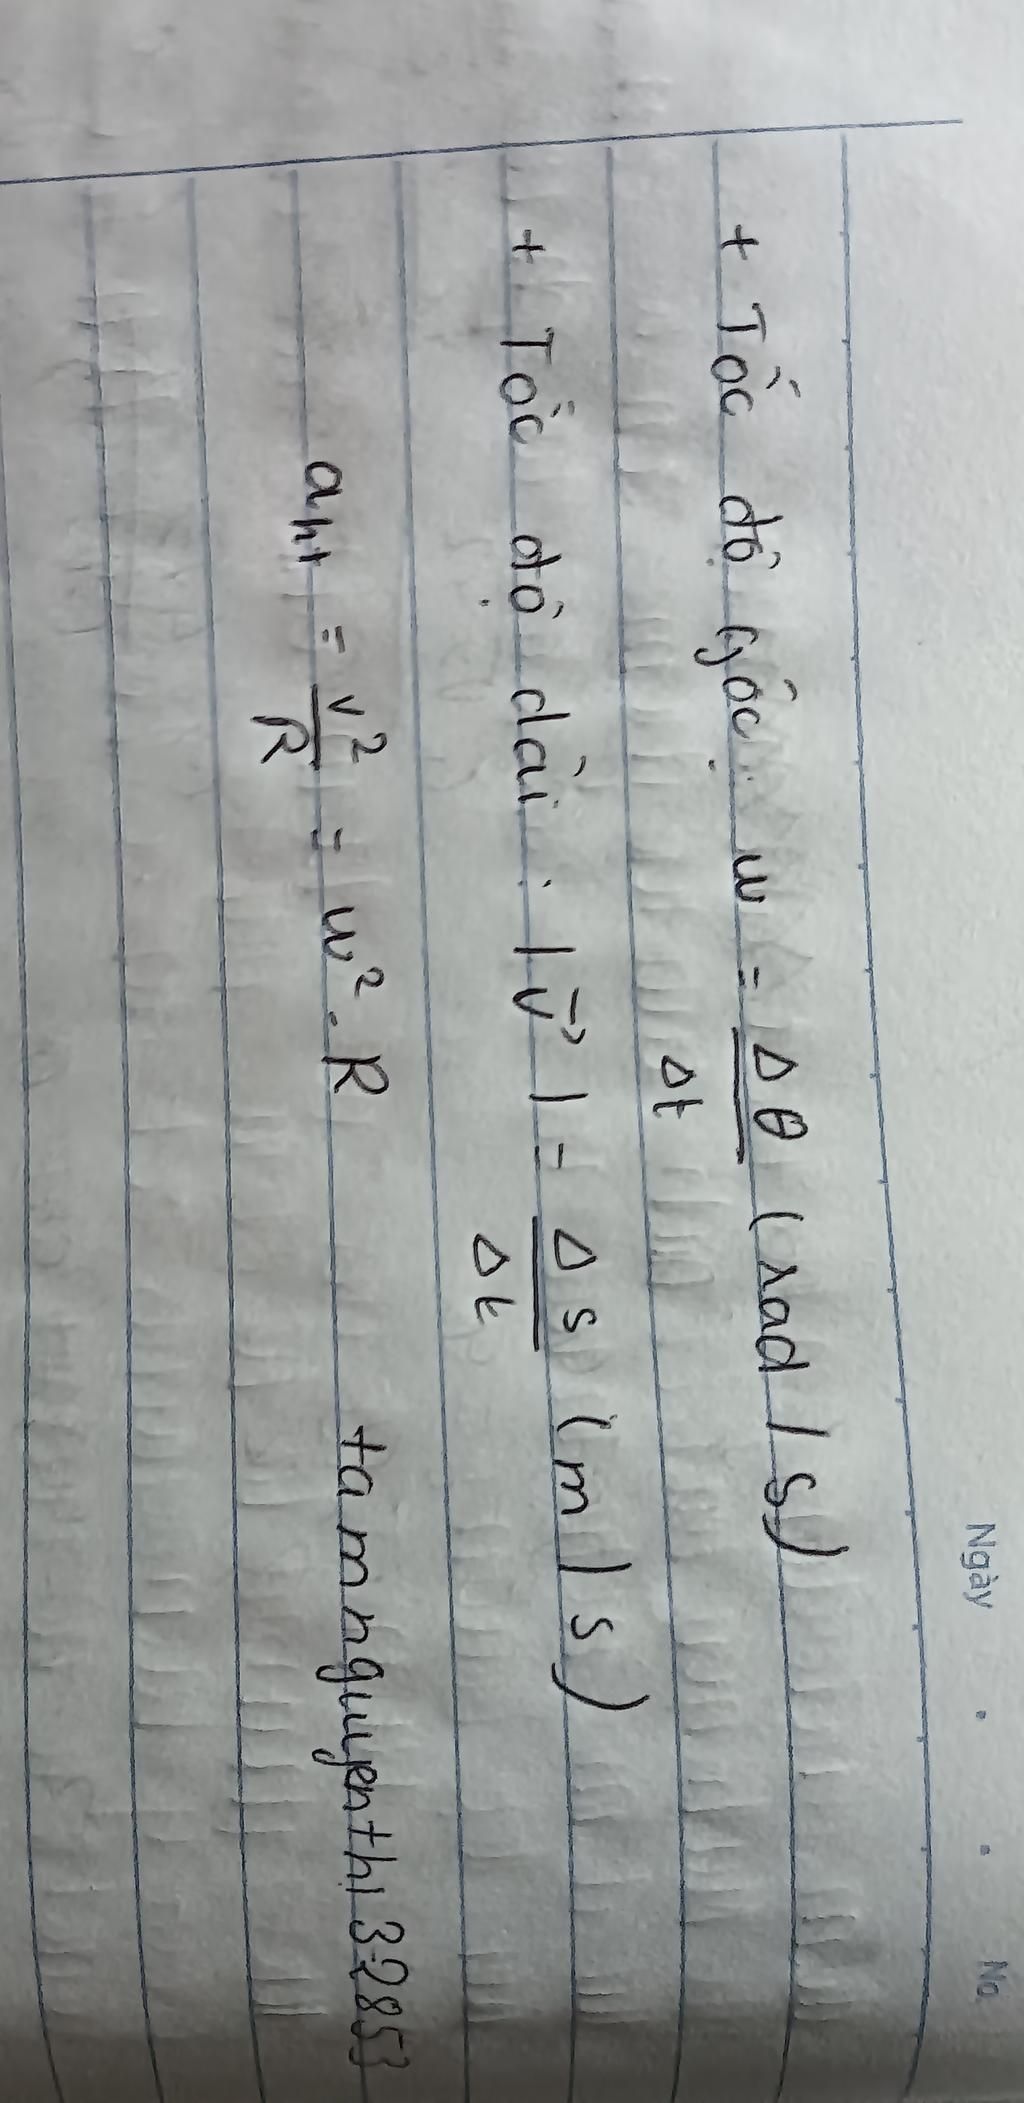 Ngày . . No.
+ Tốc độ góc : ω = Δθ (rad/s)
Δt
+ Tốc độ dài : |v⃗| = Δs (m/s)
Δt
aht = v²/R = ω² . R tamnguyenthi32853